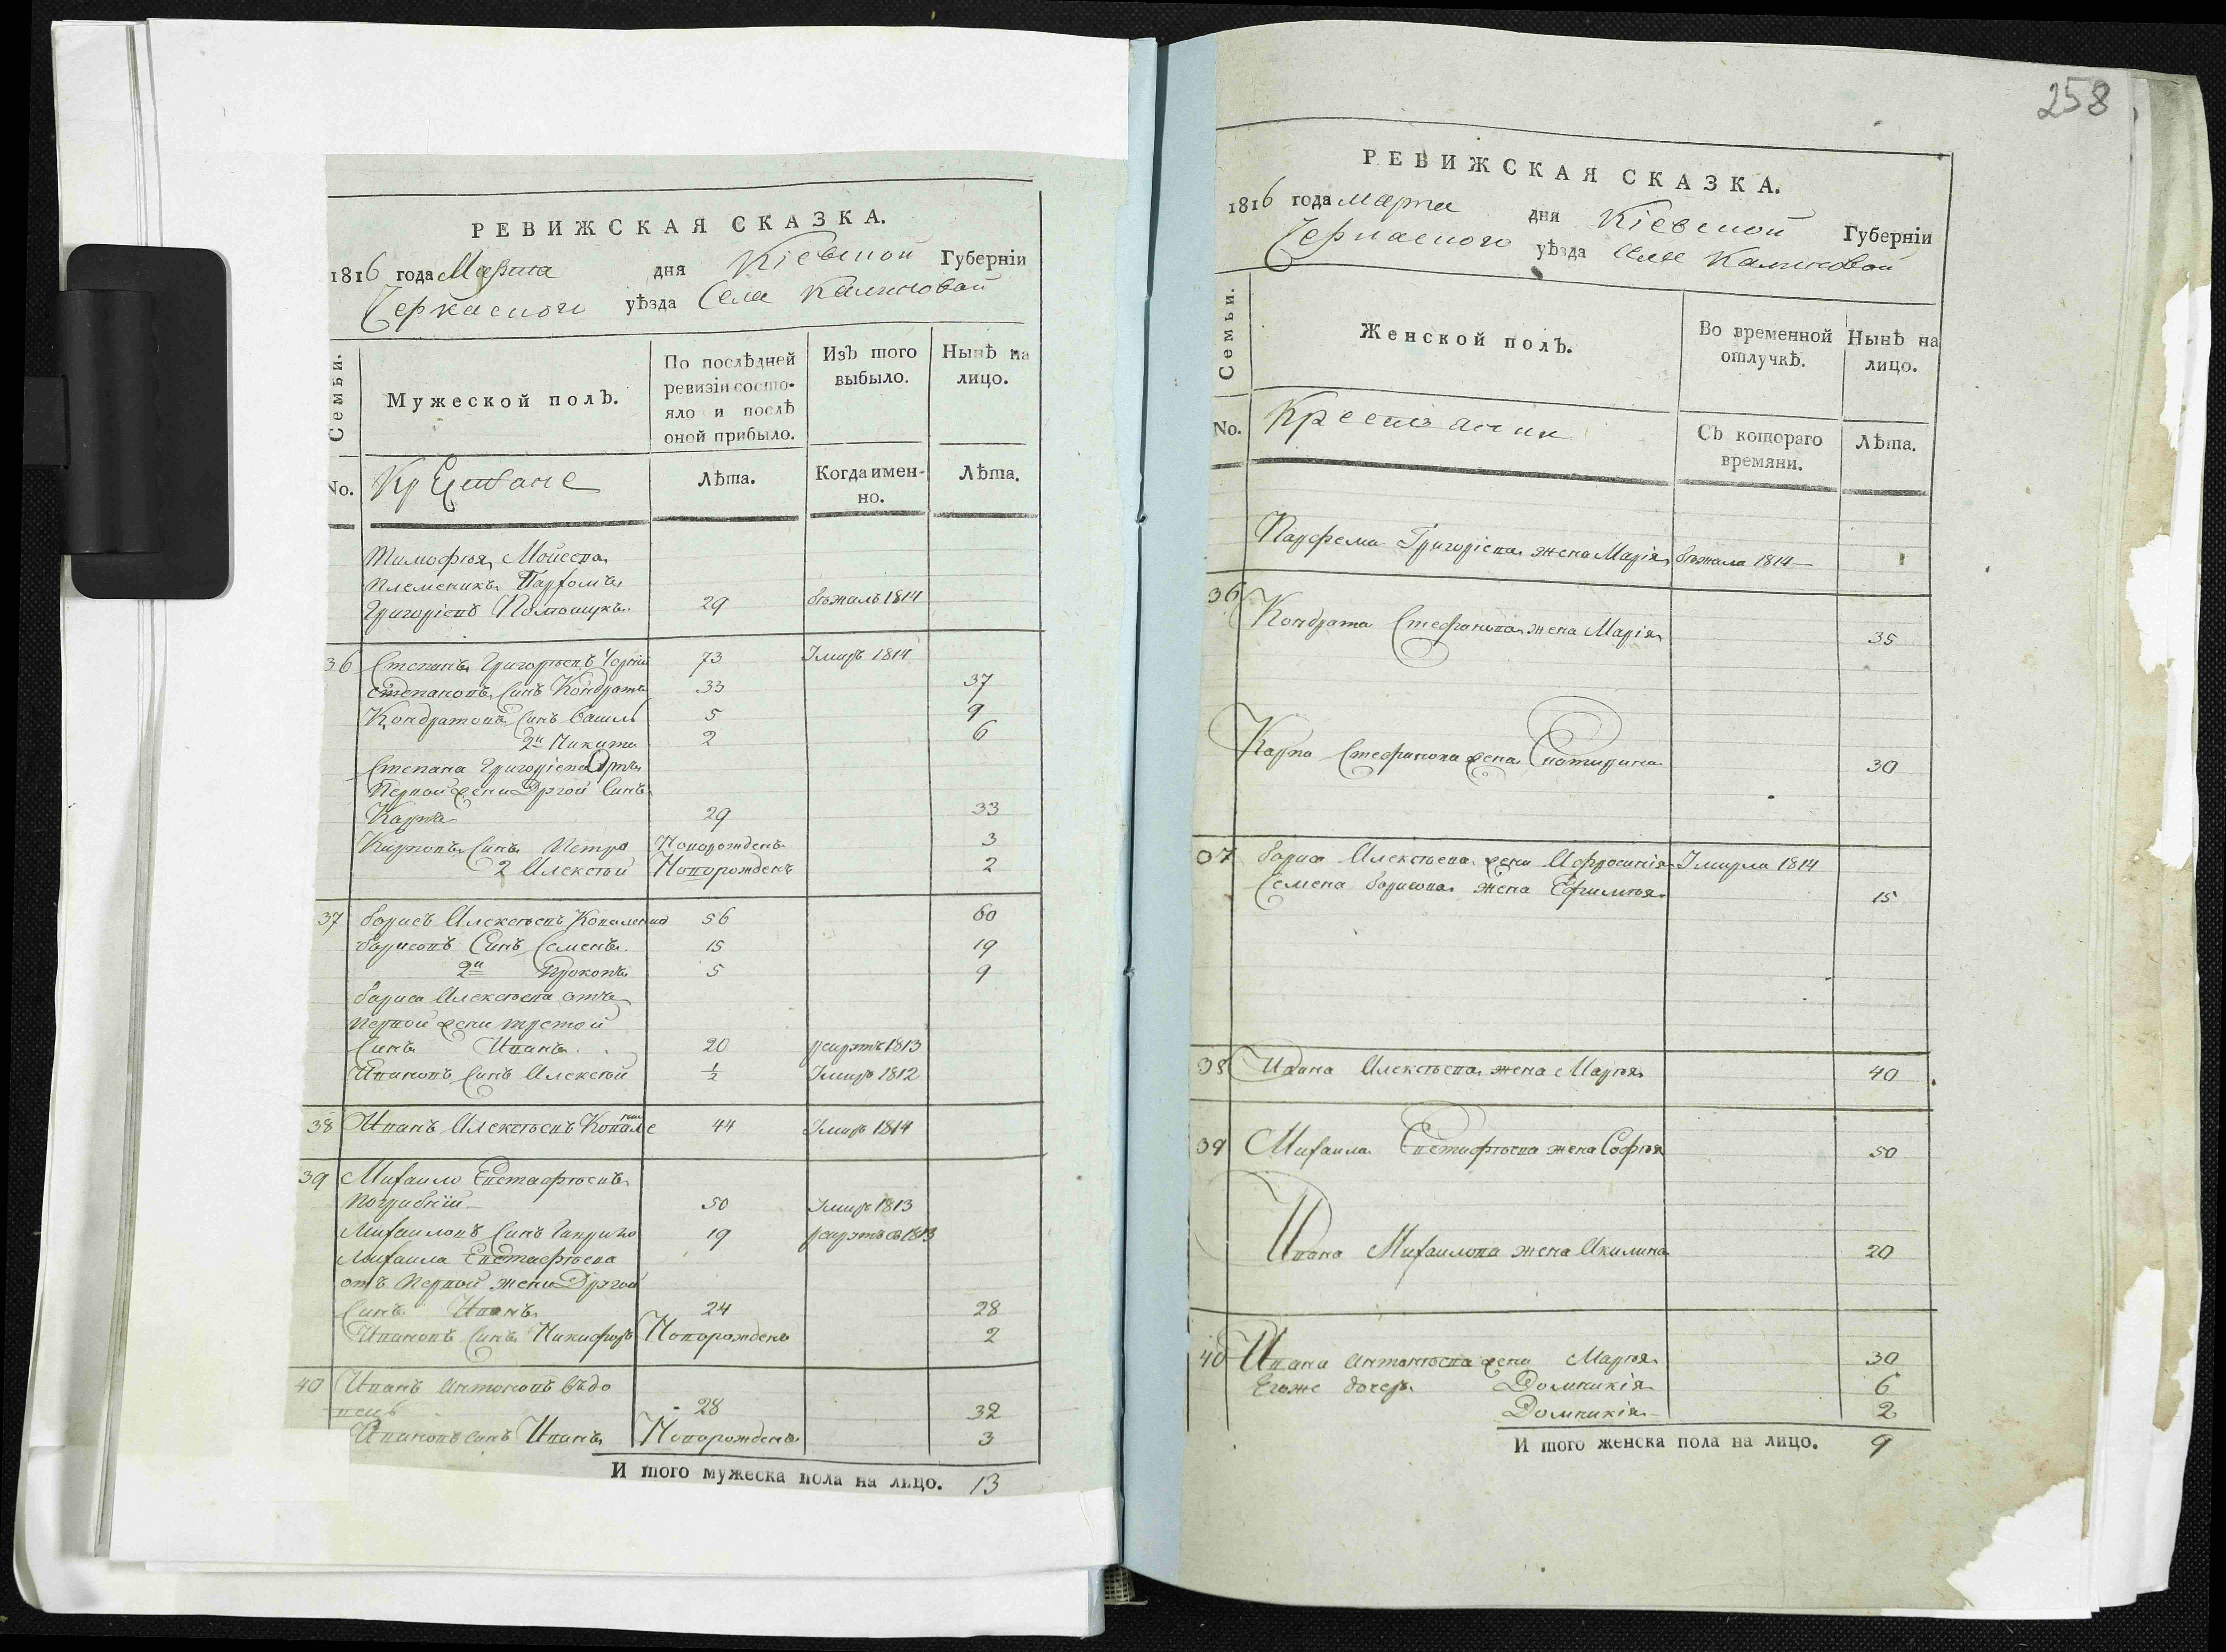 258
РЕВИЖСКАЯ СКАЗКА.
1816 года Марта дня Кіевской Губерніи
Черкаского уѣзда Села Калиновой
Семьи.
Мужеской полъ.
По послѣдней ревизіи состо-
яло и послѣ
оной прибыло.
Изъ того
выбыло.
Нынѣ на
лицо.
No.
Крестяне
Лѣта.
Когда имен-
но.
Лѣта.
Тимофѣя Мойсеева
племеникъ Парфомъ
Григоріевъ 29 бѣжалъ 1814
36 Степанъ Григорьевъ Чорній 73 Умиръ 1814
Степановъ Синъ Кондратъ 33 37
Кондратовъ Синъ Василь 5 9
2й Никита 2 6
Степана Григоріева Отъ
Первой жени Другой Синъ
Карпъ 29 33
Карповъ Синъ Петро Новорожденъ 3
2 Алексѣй Новорожденъ 2
37 Борисъ Алексѣевъ 56 60
Борисовъ Синъ Семенъ 15 19
2й Прокопъ 5 9
Бориса Алексѣева отъ
первой жени третой
Синъ Иванъ 20 рекрутъ 1813
Ивановъ Синъ Алексѣй 1/2 Умиръ 1812
38 Иванъ Алексѣевъ 44 Умиръ 1814
39 Михаило Евстафѣевъ
Погрибній 50 Умиръ 1813
Михаиловъ Синъ Гаврило 19 1813
Михаила Евстафѣева
отъ Первой жени Другой
Синъ Иванъ 24 28
Ивановъ Синъ Никифоръ Новорожденъ 2
40 Иванъ Антоновъ Вдо
вецъ 28 32
Ивановъ синъ Иванъ Новорожденъ 3
И того мужеска пола на лицо. 13
РЕВИЖСКАЯ СКАЗКА.
1816 года Марта дня Кіевской Губерніи
Черкаского уѣзда Села Калиновой
Семьи.
Женской полъ.
Во временной
отлучкѣ.
Нынѣ на
лицо.
No.
Крестянки
Съ котораго
времяни.
Лѣта.
Парфема Григоріева жена Марія бѣжала 1814
36 Кондрата Стефанова жена Марія 35
Карпа Стефанова жена Екатирина 30
37 Бориса Алексѣева жена Афросинія Умирла 1814
Семена Борисова жена Ефимѣя 15
38 Ивана Алексѣева жена Марѣя 40
39 Михаила Евстафѣева жена Софѣя 50
Ивана Михаилова жена Акилина 20
40 Ивана Антонѣева жена Марѣя 30
Егоже дочеръ Домникія 6
Домникія 2
И того женска пола на лицо. 9